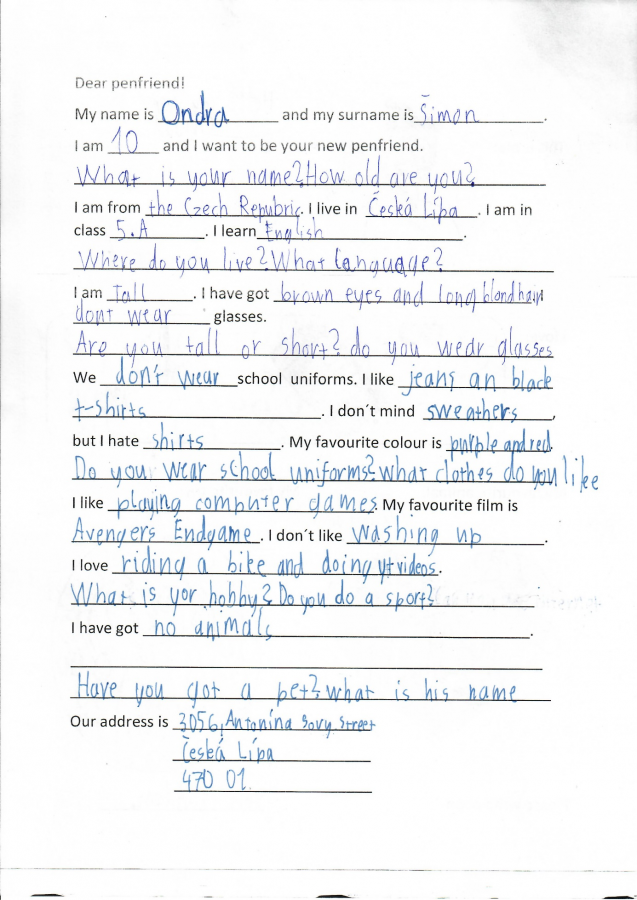 Dear penfriend!
My name is Ondra and my surname is Šimon.
I am 10 and I want to be your new penfriend.
What is your name? How old are you?
I am from the Czech Repubric. I live in Česká Lípa. I am in
class 5.A. I learn English.
Where do you live? What language?
I am tall. I have got brown eyes and long blond hair
dont wear glasses.
Are you tall or short? do you wear glasses
We don't wear school uniforms. I like jeans an black
t-shirts. I don´t mind sweathers,
but I hate shirts. My favourite colour is purple and red.
Do you wear school uniforms? what clothes do you like
I like playing computer games. My favourite film is
Avengers Endgame. I don´t like washing up.
I love riding a bike and doing yt videos.
What is yor hobby? Do you do a sport?
I have got no animals.
Have you got a pet? what is his name
Our address is 3056, Antonína Sovy Street
Česká Lípa
470 01